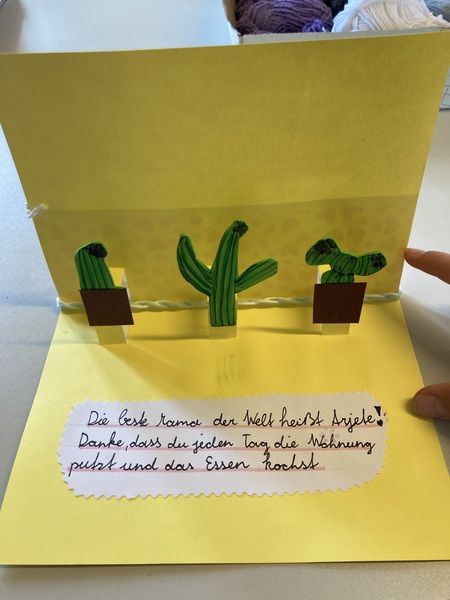 Die beste Mama der Welt heißt Arjeta!
Danke, dass du jeden Tag die Wohnung
putzt und das Essen kochst